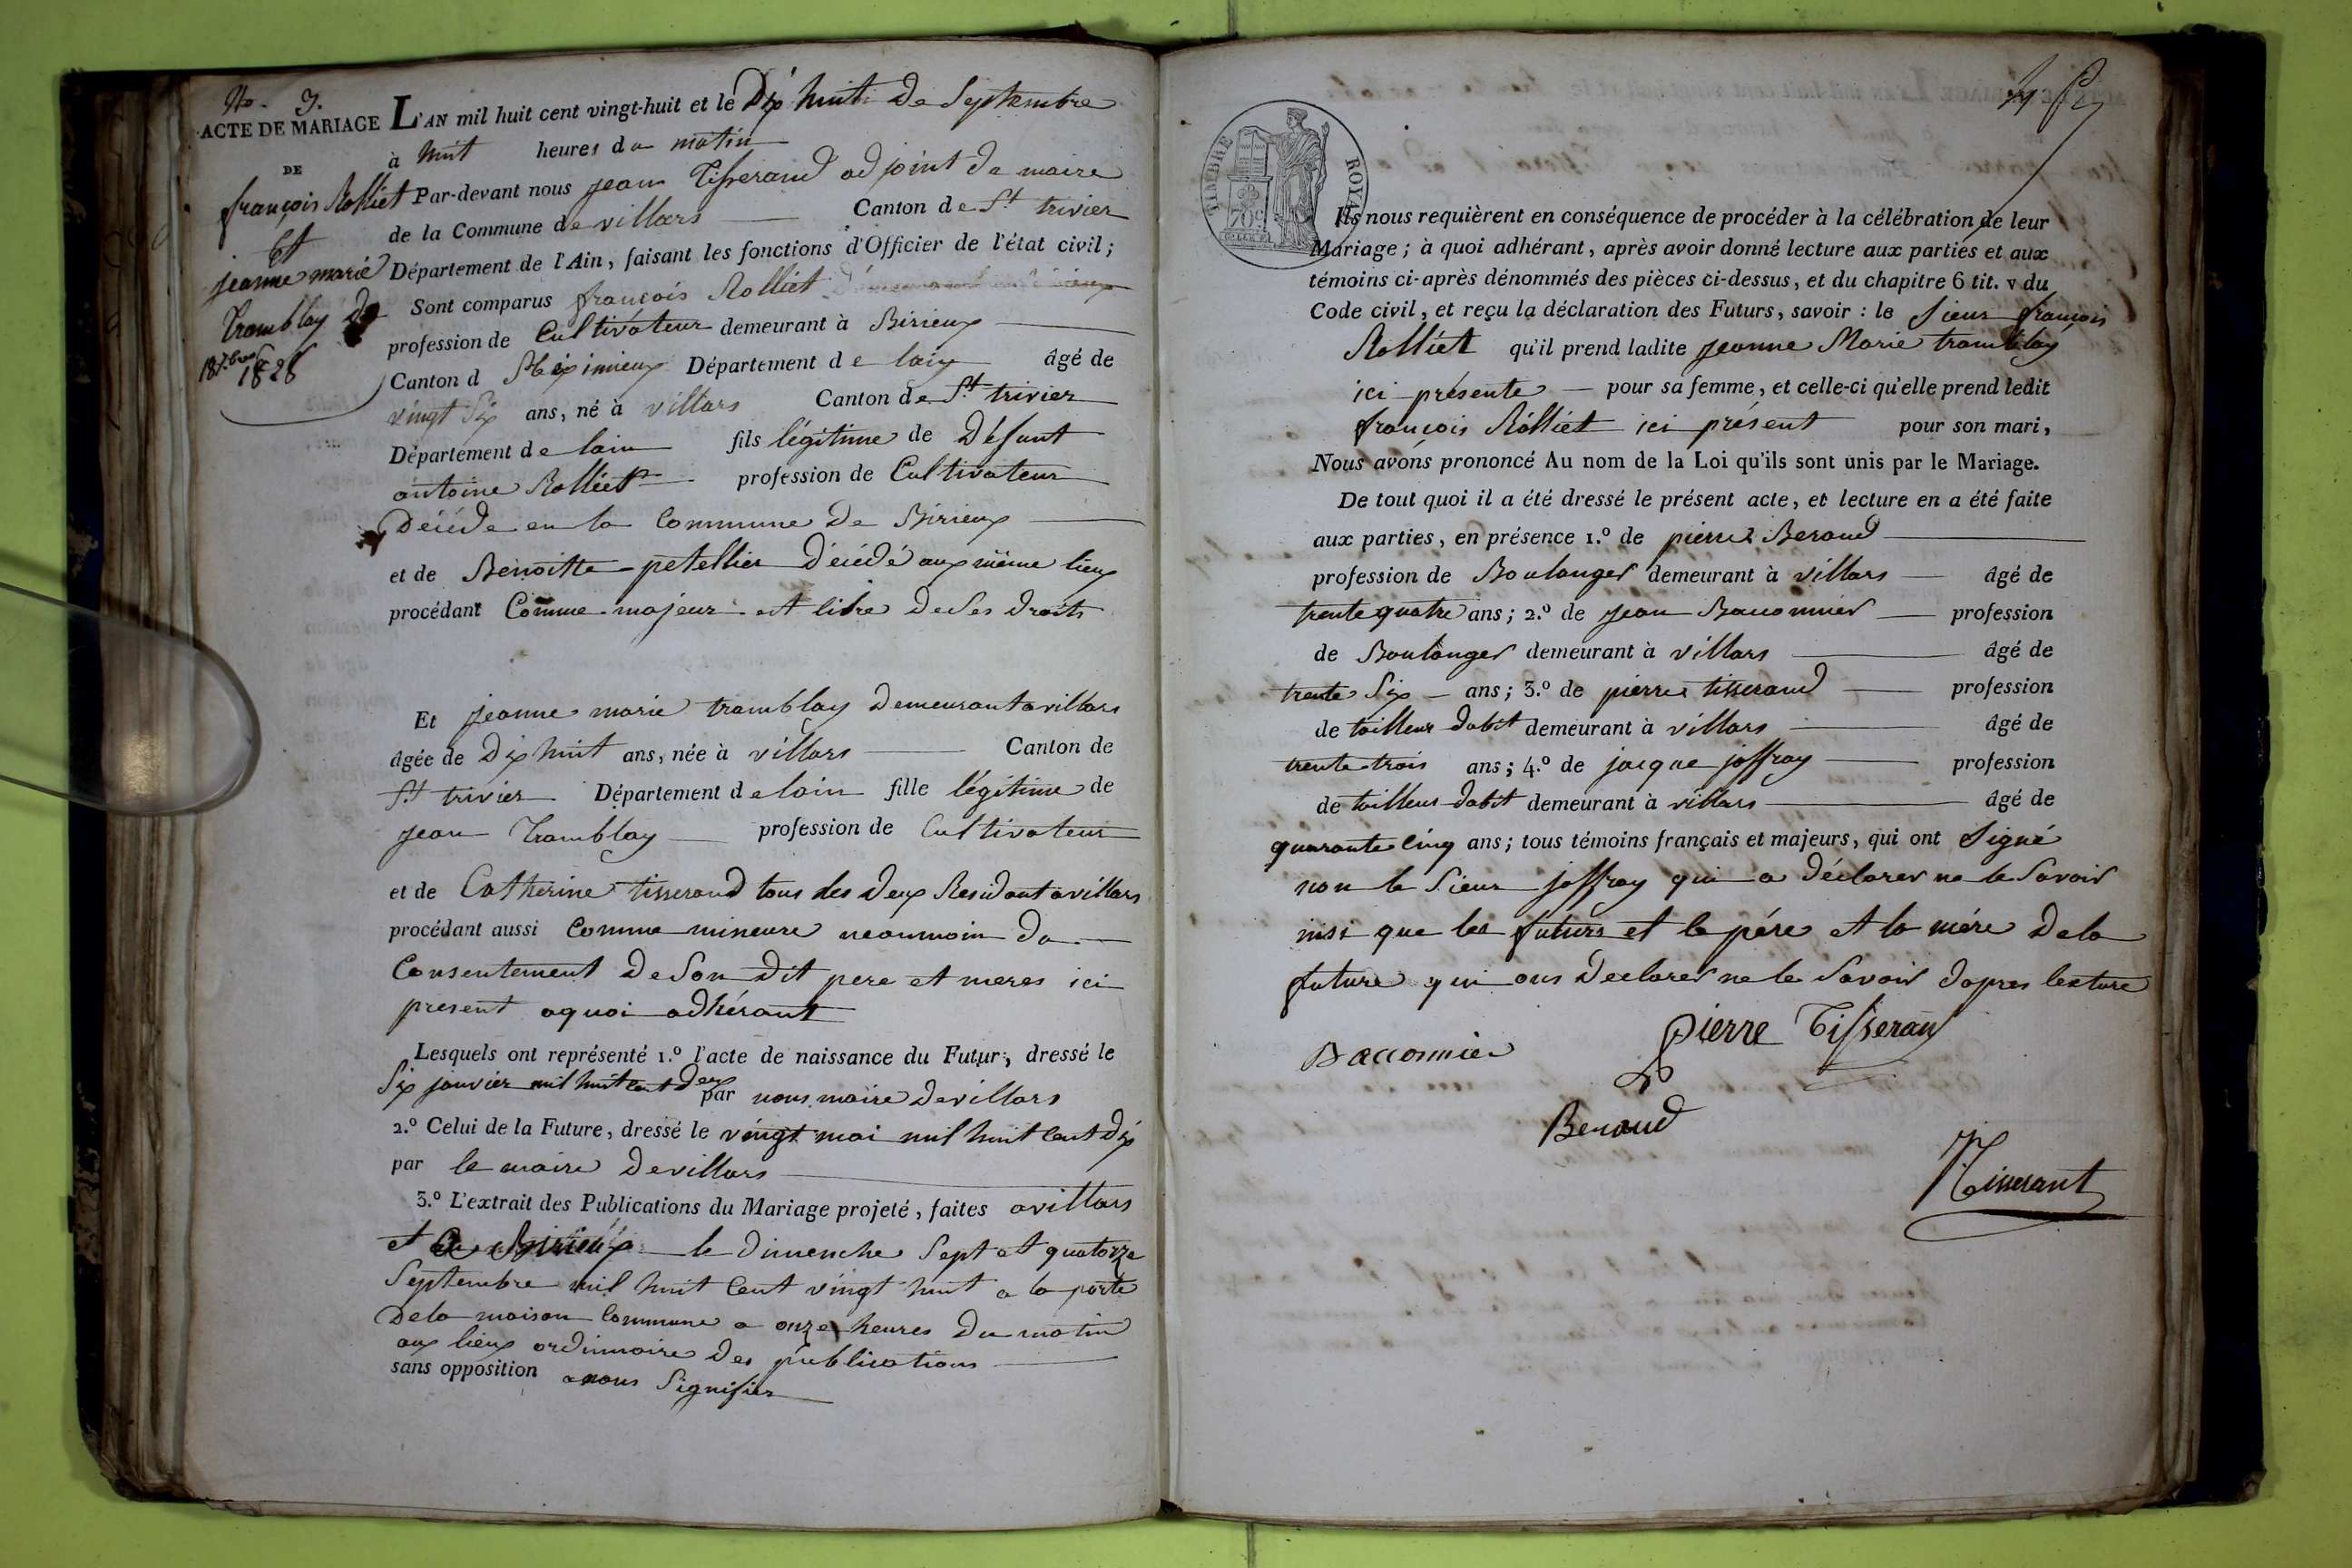 No. 7.
ACTE DE MARIAGE
DE
françois Rolliet
Et
jeanne marie
Tramblay
1828
L'AN mil huit cent vingt-huit et le Dix huit De Septembre
à huit heures du matin
Par-devant nous jean Tisserand adjoint de maire
de la Commune de villars Canton de St trivier
Département de l'Ain, faisant les fonctions d'Officier de l'état civil;
Sont comparus françois Rolliet
profession de Cultivateur demeurant à Birieux
Canton d Meximieux Département de lain âgé de
vingt Six ans, né à villars Canton de St trivier
Département de lain fils légitime de Défunt
antoine Rolliet profession de Cultivateur
Décéde en la Commune De Birieux
et de Benoitte petellier Décédé aux même lieux
procédant Comme majeur et libre De Ses Droits
Et jeanne marie tramblay Demeurant a villars
âgée de Dix huit ans, née à villars Canton de
St trivier Département de lain fille légitime de
jean Tramblay profession de Cultivateur
et de Catherine tisserand tous les Deux Residant a villars
procédant aussi Comme mineure neanmoin du
Consentement De Son Dit pere et meres ici
present aquoi adhérant
Lesquels ont représenté 1.º l'acte de naissance du Futur, dressé le
Six janvier mil huit cent deux par nous maire De villars
2.º Celui de la Future, dressé le vingt mai mil huit Cent Dix
par le maire De villars
3.º L'extrait des Publications du Mariage projeté, faites a villars
et a Birieux le Dimenche Sept et quatorze
Septembre mil huit Cent vingt huit a la porte
De la maison Commune a onze heures Du matin
aux lieux ordinnaire Des publications
sans opposition anous Signifier
TIMBRE ROYAL
70c
Ils nous requièrent en conséquence de procéder à la célébration de leur
Mariage; à quoi adhérant, après avoir donné lecture aux parties et aux
témoins ci-après dénommés des pièces ci-dessus, et du chapitre 6 tit. v du
Code civil, et reçu la déclaration des Futurs, savoir : le Sieur françois
Rolliet qu'il prend ladite jeanne Marie tramblay
ici présente pour sa femme, et celle-ci qu'elle prend ledit
françois Rolliet ici présent pour son mari,
Nous avons prononcé Au nom de la Loi qu'ils sont unis par le Mariage.
De tout quoi il a été dressé le présent acte, et lecture en a été faite
aux parties, en présence 1.º de pierre Beraud
profession de Boulanger demeurant à villars âgé de
trente quatre ans; 2.º de jean Baconnier profession
de Boulanger demeurant à villars âgé de
trente Six ans; 3.º de pierre tisserand profession
de tailleur dabit demeurant à villars âgé de
trente trois ans; 4.º de jacque joffray profession
de tailleur dabit demeurant à villars âgé de
quarante Cinq ans; tous témoins français et majeurs, qui ont Signé
non le Sieur joffray qui a déclarer ne le Savoir
insi que les futurs et le pére et la mére De la
future qui ons Declarer ne le Savoir dapres lecture
Baconnier
pierre Tisseran
Beraud
Tisserant